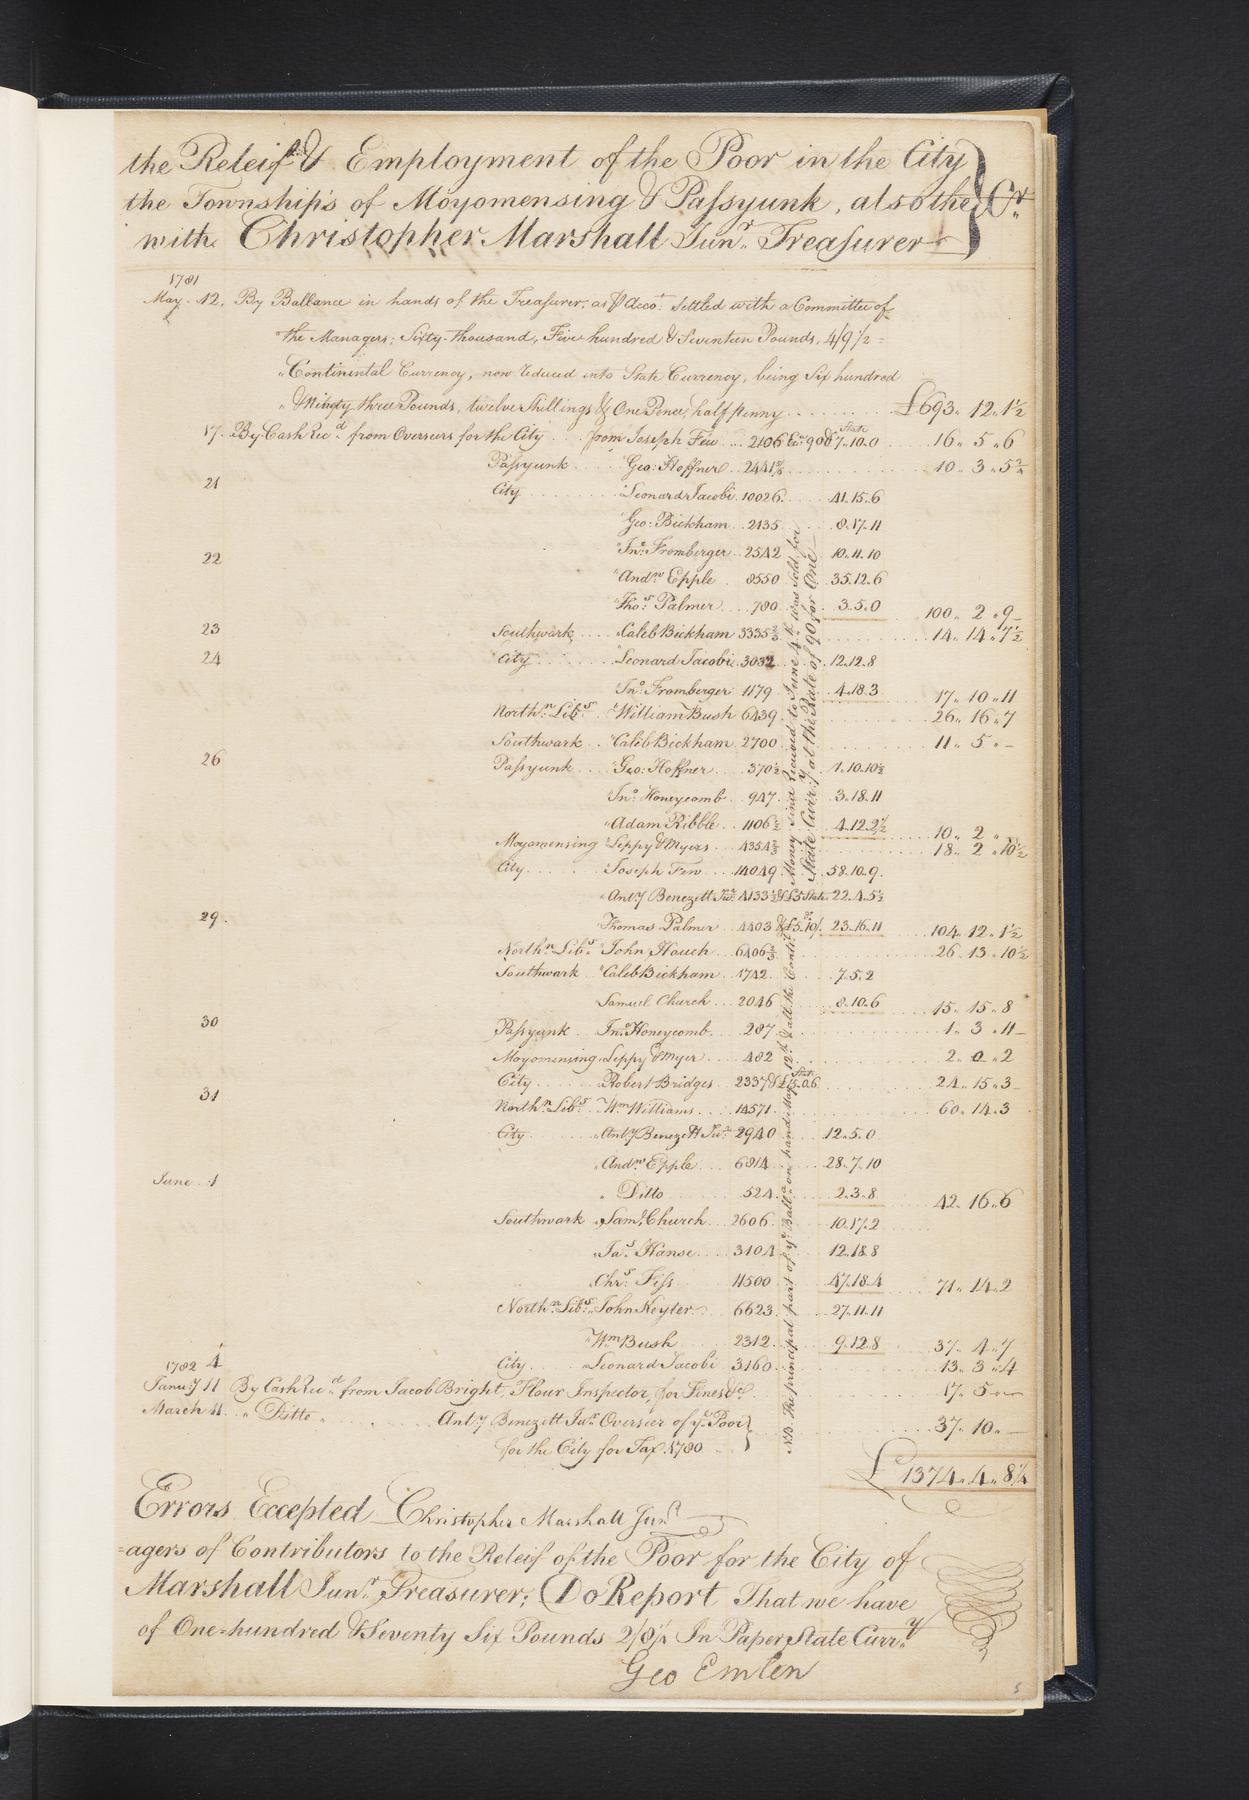 the Releif & Employment of the Poor in the City
the Townships of Moyomensing & Passyunk, also the Cr.
with Christopher Marshall Junr. Treasurer
1781
May. 12. By Ballance in hands of the Treasurer, as P Acco.t Settled with a Committee of
the Managers; Sixty thousand, Five hundred & Seventeen Pounds, 4/9 1/2 =
Continental Currency, now reduced into State Currency, being Six hundred
& Ninety three Pounds, twelve Shillings & One Penny half penny ........ £693.. 12.. 1 1/2
17. By Cash Rec.d from Overseers for the City .... from Joseph Few ... 2106 90 State 7..10..0 ... 16.. 5.. 6
Passyunk ..... Geo: Hoffner 2441 ........ 10.. 3.. 5
21 City ........ Leonard Jacobi 10026 .... 41..15..6
Geo: Bickham ... 2135 .... 8..17..11
22 Jno. Fromberger .. 2542 10..11..10
Andw. Epple 8550 35..12..6
Thos. Palmer ... 780 3..5..0 100.. 2.. 9
23 Southwark .... Caleb Bickham 3335 ........ 14.. 14.. 7 1/2
24 City ........ Leonard Jacobi 3032 .. 12..12..8
Jno. Fromberger 1179 4..18..3 17.. 10.. 11
Northn. Libs. William Bush 6439 ........ 26.. 16.. 7
Southwark .. Caleb Bickham 2700 ........ 11.. 5.. —
26 Passyunk .... Geo: Hoffner ... 370 1/2 1..10..10 1/2
Jno. Honeycomb .. 947 ... 3..18..11
Adam Ribble .. 1106 1/2 4..12..2 1/2 10.. 2.. „
Moyomensing Leppy & Myers .. 4354 ........ 18.. 2.. 10 1/2
City ........ Joseph Few .. 14049 .. 58..10..9
Anty. Benezett Junr. 4133 1/2 @ £5 State 22..4..5 1/2
29. Thomas Palmer ... 4403 @ £5.10/. 23..16..11 104.. 12.. 1 1/2
Northn. Libs. John Hauch ... 6406 ........ 26.. 13.. 10 1/2
Southwark .. Caleb Bickham .. 1742 .. 7..5..2
Samuel Church ... 2046 8..10..6 15.. 15.. 8
30 Passyunk .. Jno. Honeycomb .. 287 ........ 1.. 3.. 11
Moyomensing Leppy & Myer .... 482 ........ 2.. 0.. 2
City ........ Robert Bridges .. 2337 State ........ 24.. 15.. 3
31 Northn. Libs. Wm. Williams .... 14571 ........ 60.. 14.. 3
City ........ Anty. Benezett Junr. 2940 .. 12..5..0
Andw. Epple .... 6814 28..7..10
June 1 Ditto ........ 524 .. 2..3..8 42.. 16.. 6
Southwark Saml. Church .. 2606 .. 10..17..2
Jas. Hanse ... 3104 12..18..8
Chrs. Fiss .... 11500 47..18..4 71.. 14.. 2
Northn. Libs. John Keyler .. 6623 27..11..11
Wm. Bush 2312 .. 9..12..8 37.. 4.. 7
4 City ... Leonard Jacobi 3160 ........ 13.. 3.. 4
1782
Janu.y 11 By Cash Rec.d from Jacob Bright, Flour Inspector, for Fines &c. ........ 17.. 5.. —
March 11. „ Ditto „ ........ Ant.y Benezett Junr. Overseer of ye. Poor
for the City for Tax 1780 ........ 37.. 10.. —
£1374.. 4.. 8 1/4
NB. The principal part of ye. Balla. on hand May 12th. & all the Continl. Money since received to June 4th. was sold for
State Curr.y at the Rate of 90 for One
Errors Excepted Christopher Marshall Junr.
=agers of Contributors to the Releif of the Poor for the City of
Marshall Junr. Treasurer; Do Report That we have
of One=hundred & Seventy Six Pounds 2/8 1/4 In Paper State Curr.y
Geo Emlen
5